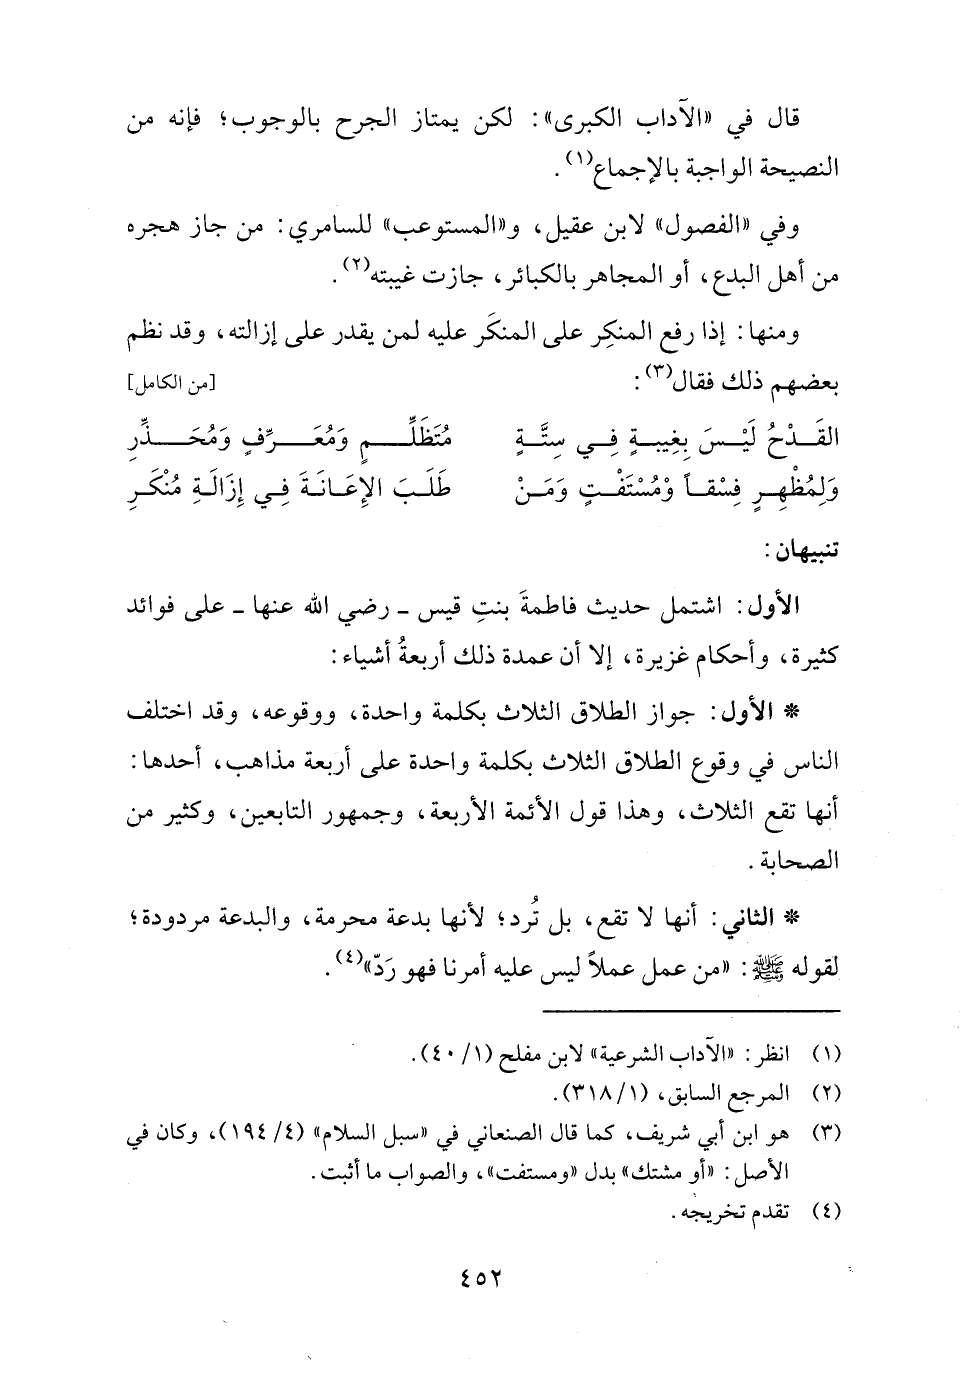 قال في «الآداب الكبرى»: لكن يمتاز الجرح بالوجوب؛ فإنه من
النصيحة الواجبة بالإجماع(١).
وفي «الفصول» لابن عقيل، و«المستوعب» للسامري: من جاز هجره
من أهل البدع، أو المجاهر بالكبائر، جازت غيبته(٢).
ومنها: إذا رفع المنكِر على المنكَر عليه لمن يقدر على إزالته، وقد نظم
بعضهم ذلك فقال(٣): [من الكامل]
القَـدْحُ لَيْـسَ بِغِيبـةٍ فِـي سِتَّةٍ مُتَظَلِّـمٍ وَمُعَـرِّفٍ وَمُحَـذِّرِ
وَلِمُظْهِـرٍ فِسْقـاً وْمُسْتَفْـتٍ وَمَـنْ طَلَـبَ الإِعَـانَـةَ فِـي إِزَالَـةِ مُنْكَـرِ
تنبيهان:
الأول: اشتمل حديث فاطمةَ بنتِ قيس ـ رضي الله عنها ـ على فوائد
كثيرة، وأحكام غزيرة، إلا أن عمدة ذلك أربعةُ أشياء:
* الأول: جواز الطلاق الثلاث بكلمة واحدة، ووقوعه، وقد اختلف
الناس في وقوع الطلاق الثلاث بكلمة واحدة على أربعة مذاهب، أحدها:
أنها تقع الثلاث، وهذا قول الأئمة الأربعة، وجمهور التابعين، وكثير من
الصحابة.
* الثاني: أنها لا تقع، بل تُرد؛ لأنها بدعة محرمة، والبدعة مردودة؛
لقوله ﷺ: «من عمل عملاً ليس عليه أمرنا فهو رَدّ»(٤).
(١) انظر: «الآداب الشرعية» لابن مفلح (١/ ٤٠).
(٢) المرجع السابق، (١/ ٣١٨).
(٣) هو ابن أبي شريف، كما قال الصنعاني في «سبل السلام» (٤/ ١٩٤)، وكان في
الأصل: «أو مشتك» بدل «ومستفت»، والصواب ما أثبت.
(٤) تقدم تخريجه.
٤٥٢